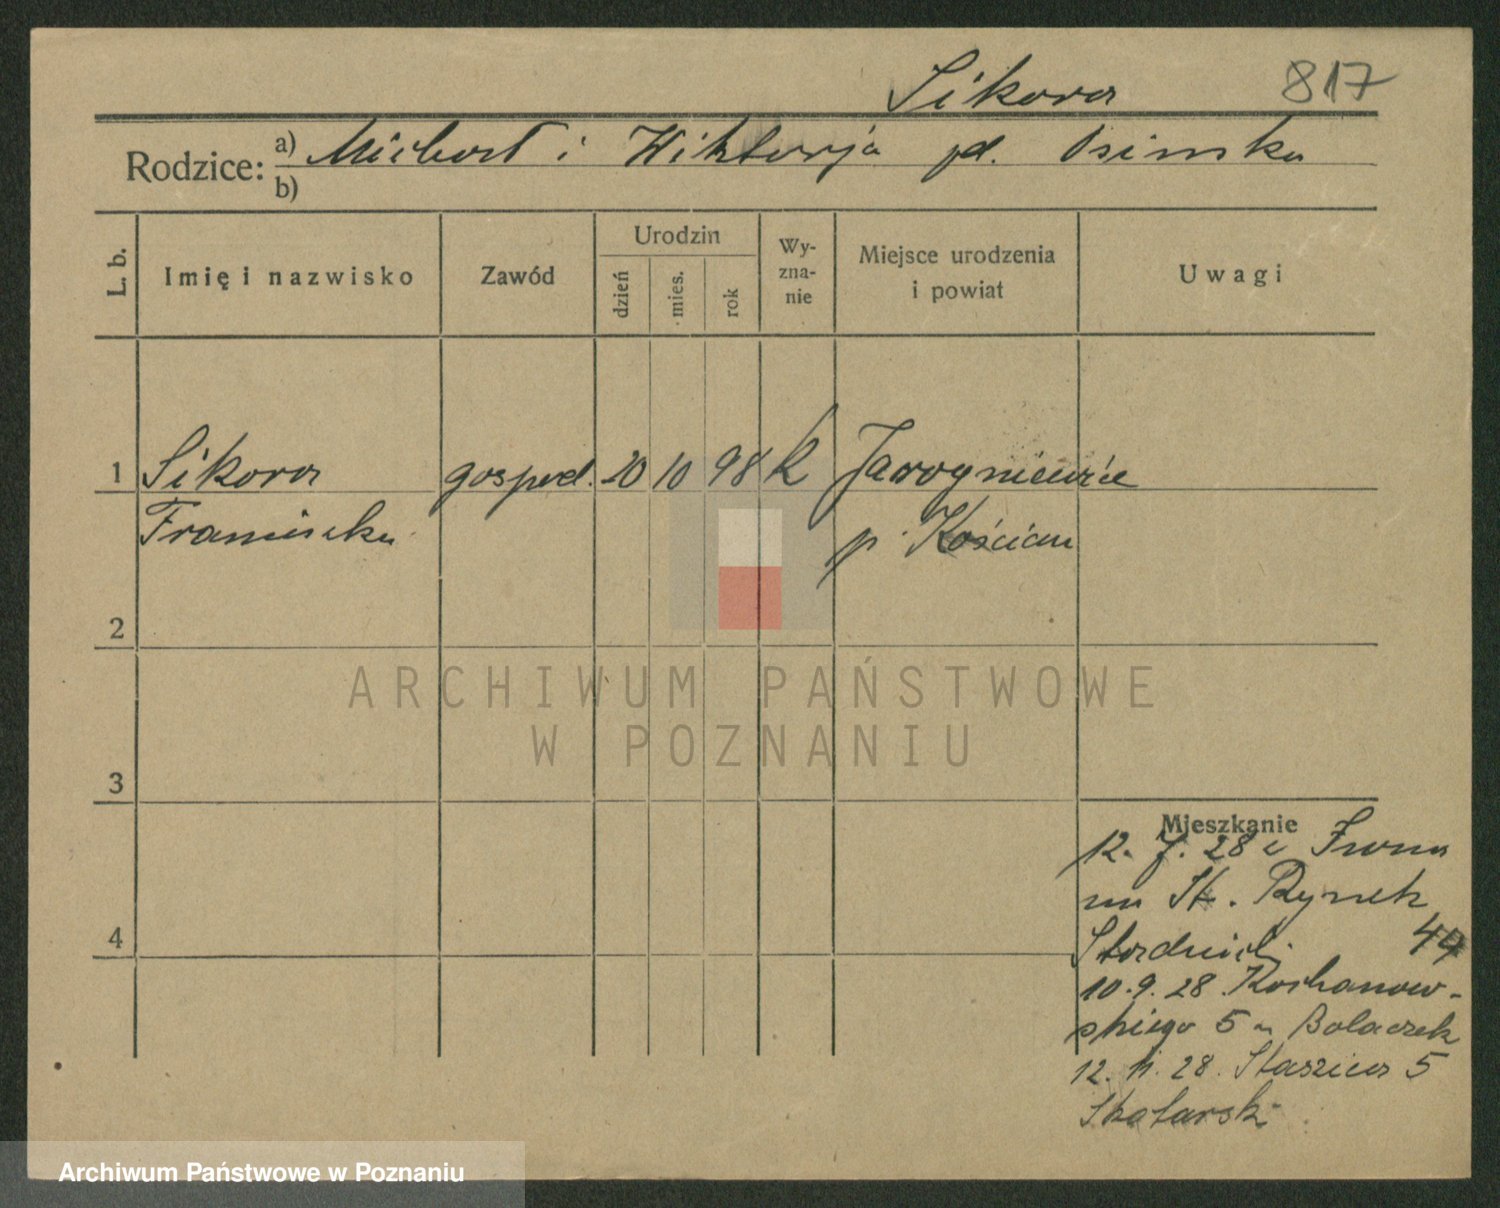 Sikora 817
Rodzice: a) Michał i Wiktorja pd. Osinska
b)
L. b. Imię i nazwisko Zawód Urodzin dzień mies. rok Wyznanie Miejsce urodzenia i powiat Uwagi
1 Sikora gospod. 20 10 98 k Jarogniewice
Franciszka p. Kościan
2
ARCHIWUM PAŃSTWOWE
W POZNANIU
3
Mieszkanie
12. 7. 28 z
St. Rynek
44
10. 9. 28. Kochanow-
skiego 5 Bolaczek
12. 11. 28. Staszica 5
Skotarski
4
Archiwum Państwowe w Poznaniu